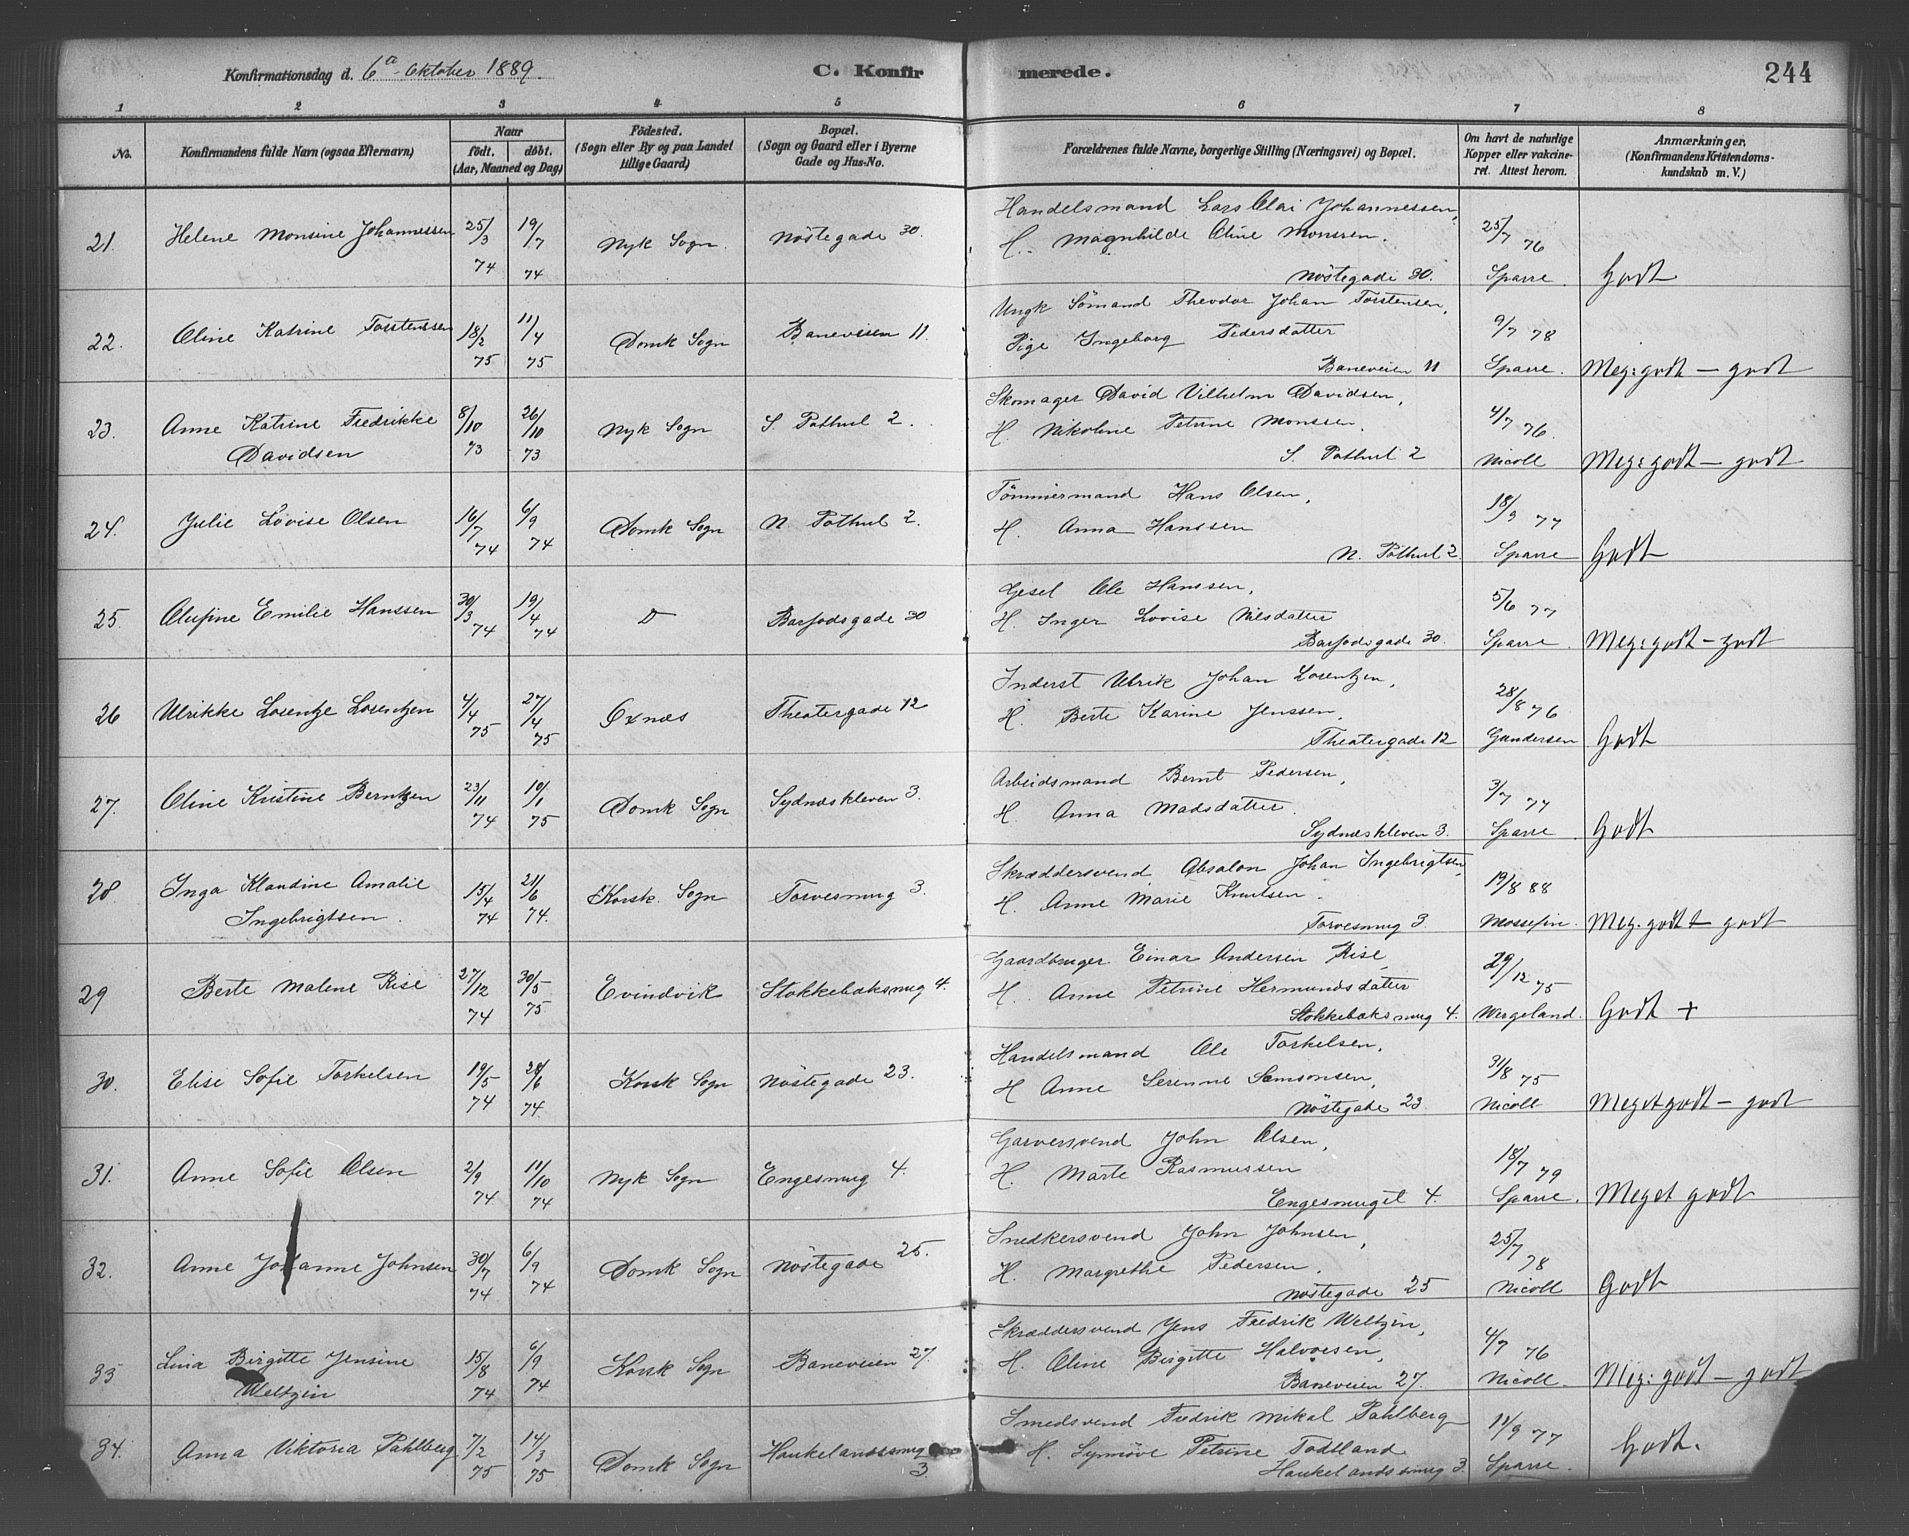 Konfirmationsdag d. 6a Oktober 1889.
C. Konfirmerede.
244
1 2 3 4 5 6 7 8
No.
Konfirmandens fulde Navn (ogsaa Efternavn)
Naar
födt. döbt.
(Aar, Maaned og Dag)
Födested.
(Sogn eller By og paa Landet
tillige Gaard)
Bopæl.
(Sogn og Gaard eller i Byerne
Gade og Hus-No.
Forældrenes fulde Navne, borgerlige Stilling (Næringsvei) og Bopæl.
Om havt de naturlige
Kopper eller vakcine-
ret. Attest herom.
Anmærkninger.
(Konfirmandens Kristendoms-
kundskab m. V.)
21. Helene Monsine Johannessen 25/3 74 19/7 74 Nyk Sogn. Nöstegade 30. Handelsmand Lars Olai Johannessen,
H. Magnhilde Oline Monsen. 25/7 76
Nöstegade 30. Sparre. Godt
22. Oline Katrine Torstensen 18/2 75 11/4 75 Domk Sogn Baneveien 11. Ungk Sömand Theodor Johan Torstensen,
Pige Ingeborg Pedersdatter 9/7 78
Baneveien 11 Sparre. Meg: godt – godt
23. Anne Katrine Fredrikke 8/10 73 26/10 73 Nyk Sogn S. Pothul 2. Skomager David Vilhelm Davidsen,
Davidsen H. Nikoline Petrine Monssen. 4/7 76.
S. Pothul 2 Nicoll Meg: godt – godt
24. Julie Lovise Olsen 16/7 74 6/9 74 Domk Sogn N. Pothul 2. Tömmermand Hans Olsen,
H. Anna Hanssen 18/9 77
N. Pothul 2. Sparre Godt
25 Olufine Emilie Hanssen 30/3 74 19/4 74 D Barfodsgade 30 Gesel Ole Hanssen,
H. Inger Lovise Nilsdatter 5/6 77
Barfodsgade 30. Sparre. Meg: godt – godt
26 Ulrikke Losentze Losentzen 4/4 75 27/4 75 Öxnæs Theatergade 12 Inderst Ulrik Johan Losentzen,
H. Berte Karine Jenssen, 28/8 76
Theatergade 12 Gundersen Godt
27. Oline Kristine Berntzen 23/11 74 10/1 75 Domk Sogn Sydnæskleven 3. Arbeidsmand Bernt Pedersen,
H. Anna Madsdatter. 3/7 77
Sydnæskleven 3. Sparre. Godt
28. Inga Klaudine Amalie 15/4 74 21/6 74. Korsk. Sogn Torvesmug 3. Skræddersvend Absalon Johan Ingebrigtsen,
Ingebrigtsen. H. Anne Marie Knutsen. 19/8 88
Torvesmug 3. Mossefin. Meg: godt + godt
29 Berte Malene Rise 27/12 74 30/5 75 Evindvik Stokkebæksmug 4. Gaardbruger Einar Andersen Rise,
H. Anne Petrine Hermundsdatter 29/12 75
Stokkebæksmug 4. Wergeland. Godt +
30. Elise Sofie Torkelsen 19/5 74 28/6 74 Korsk Sogn Nöstegade 23. Handelsmand Ole Torkelsen,
H Anne Serenne Samsonsen, 31/8 75
Nöstegade 23. Nicoll Meget godt – godt
31. Anne Sofie Olsen 2/9 74 11/10 74 Nyk Sogn Engesmug 4. Garversvend John Olsen,
H. Marte Rasmussen 18/7 79
Engesmuget 4. Sparre. Meget godt
32. Anne Johanne Johnsen 30/7 74 6/9 74 Domk Sogn Nöstegade 25. Snedkersvend John Johnsen,
H. Margrethe Pedersen. 25/7 78
Nöstegade 25 Nicoll Godt
33 Lina Birgitte Jensine 15/8 74 6/9 74 Korsk Sogn Baneveien 27. Skræddersvend Jens Fredrik Weltzin,
Weltzin H. Oline Birgitte Halvorsen, 4/7 76
Baneveien 27. Nicoll. Meg: godt – godt
34. Anna Viktoria Pahlberg 7/2 75 14/3 75 Domk Sogn Haukelandssmug 3 Smedsvend Fredrik Mikal Pahlberg
H. Synnöve Petrine Todtland 11/9 77
Haukelandssmug 3. Sparre. Godt.